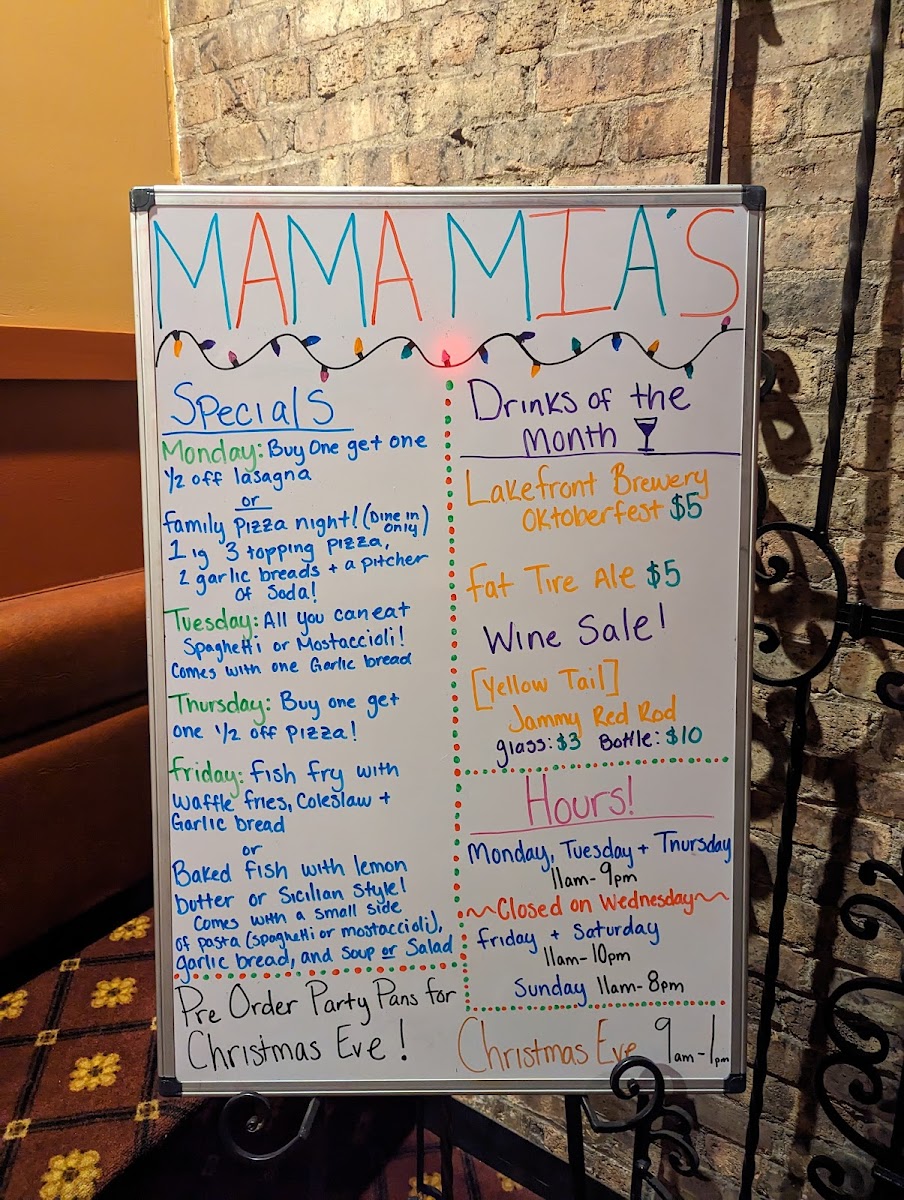 MAMA MIA'S
Specials
Monday: Buy One get one
1/2 off lasagna
or
family Pizza night! (Dine in only)
1 lg 3 topping Pizza,
2 garlic breads + a pitcher
of Soda!
Tuesday: All you can eat
Spaghetti or Mostaccioli!
Comes with one Garlic bread
Thursday: Buy one get
one 1/2 off Pizza!
friday: fish fry with
waffle fries, Coleslaw +
Garlic bread
or
Baked fish with lemon
butter or Sicilian style!
Comes with a small side
of pasta (spaghetti or mostaccioli),
garlic bread, and soup or Salad
Drinks of the
Month
Lakefront Brewery
Oktoberfest $5
Fat Tire Ale $5
Wine Sale!
[Yellow Tail]
Jammy Red Rod
glass: $3 Bottle: $10
Hours!
Monday, Tuesday + Thursday
11am-9pm
~Closed on Wednesday~
friday + Saturday
11am-10pm
Sunday 11am-8pm
Pre Order Party Pans for
Christmas Eve!
Christmas Eve 9am-1pm